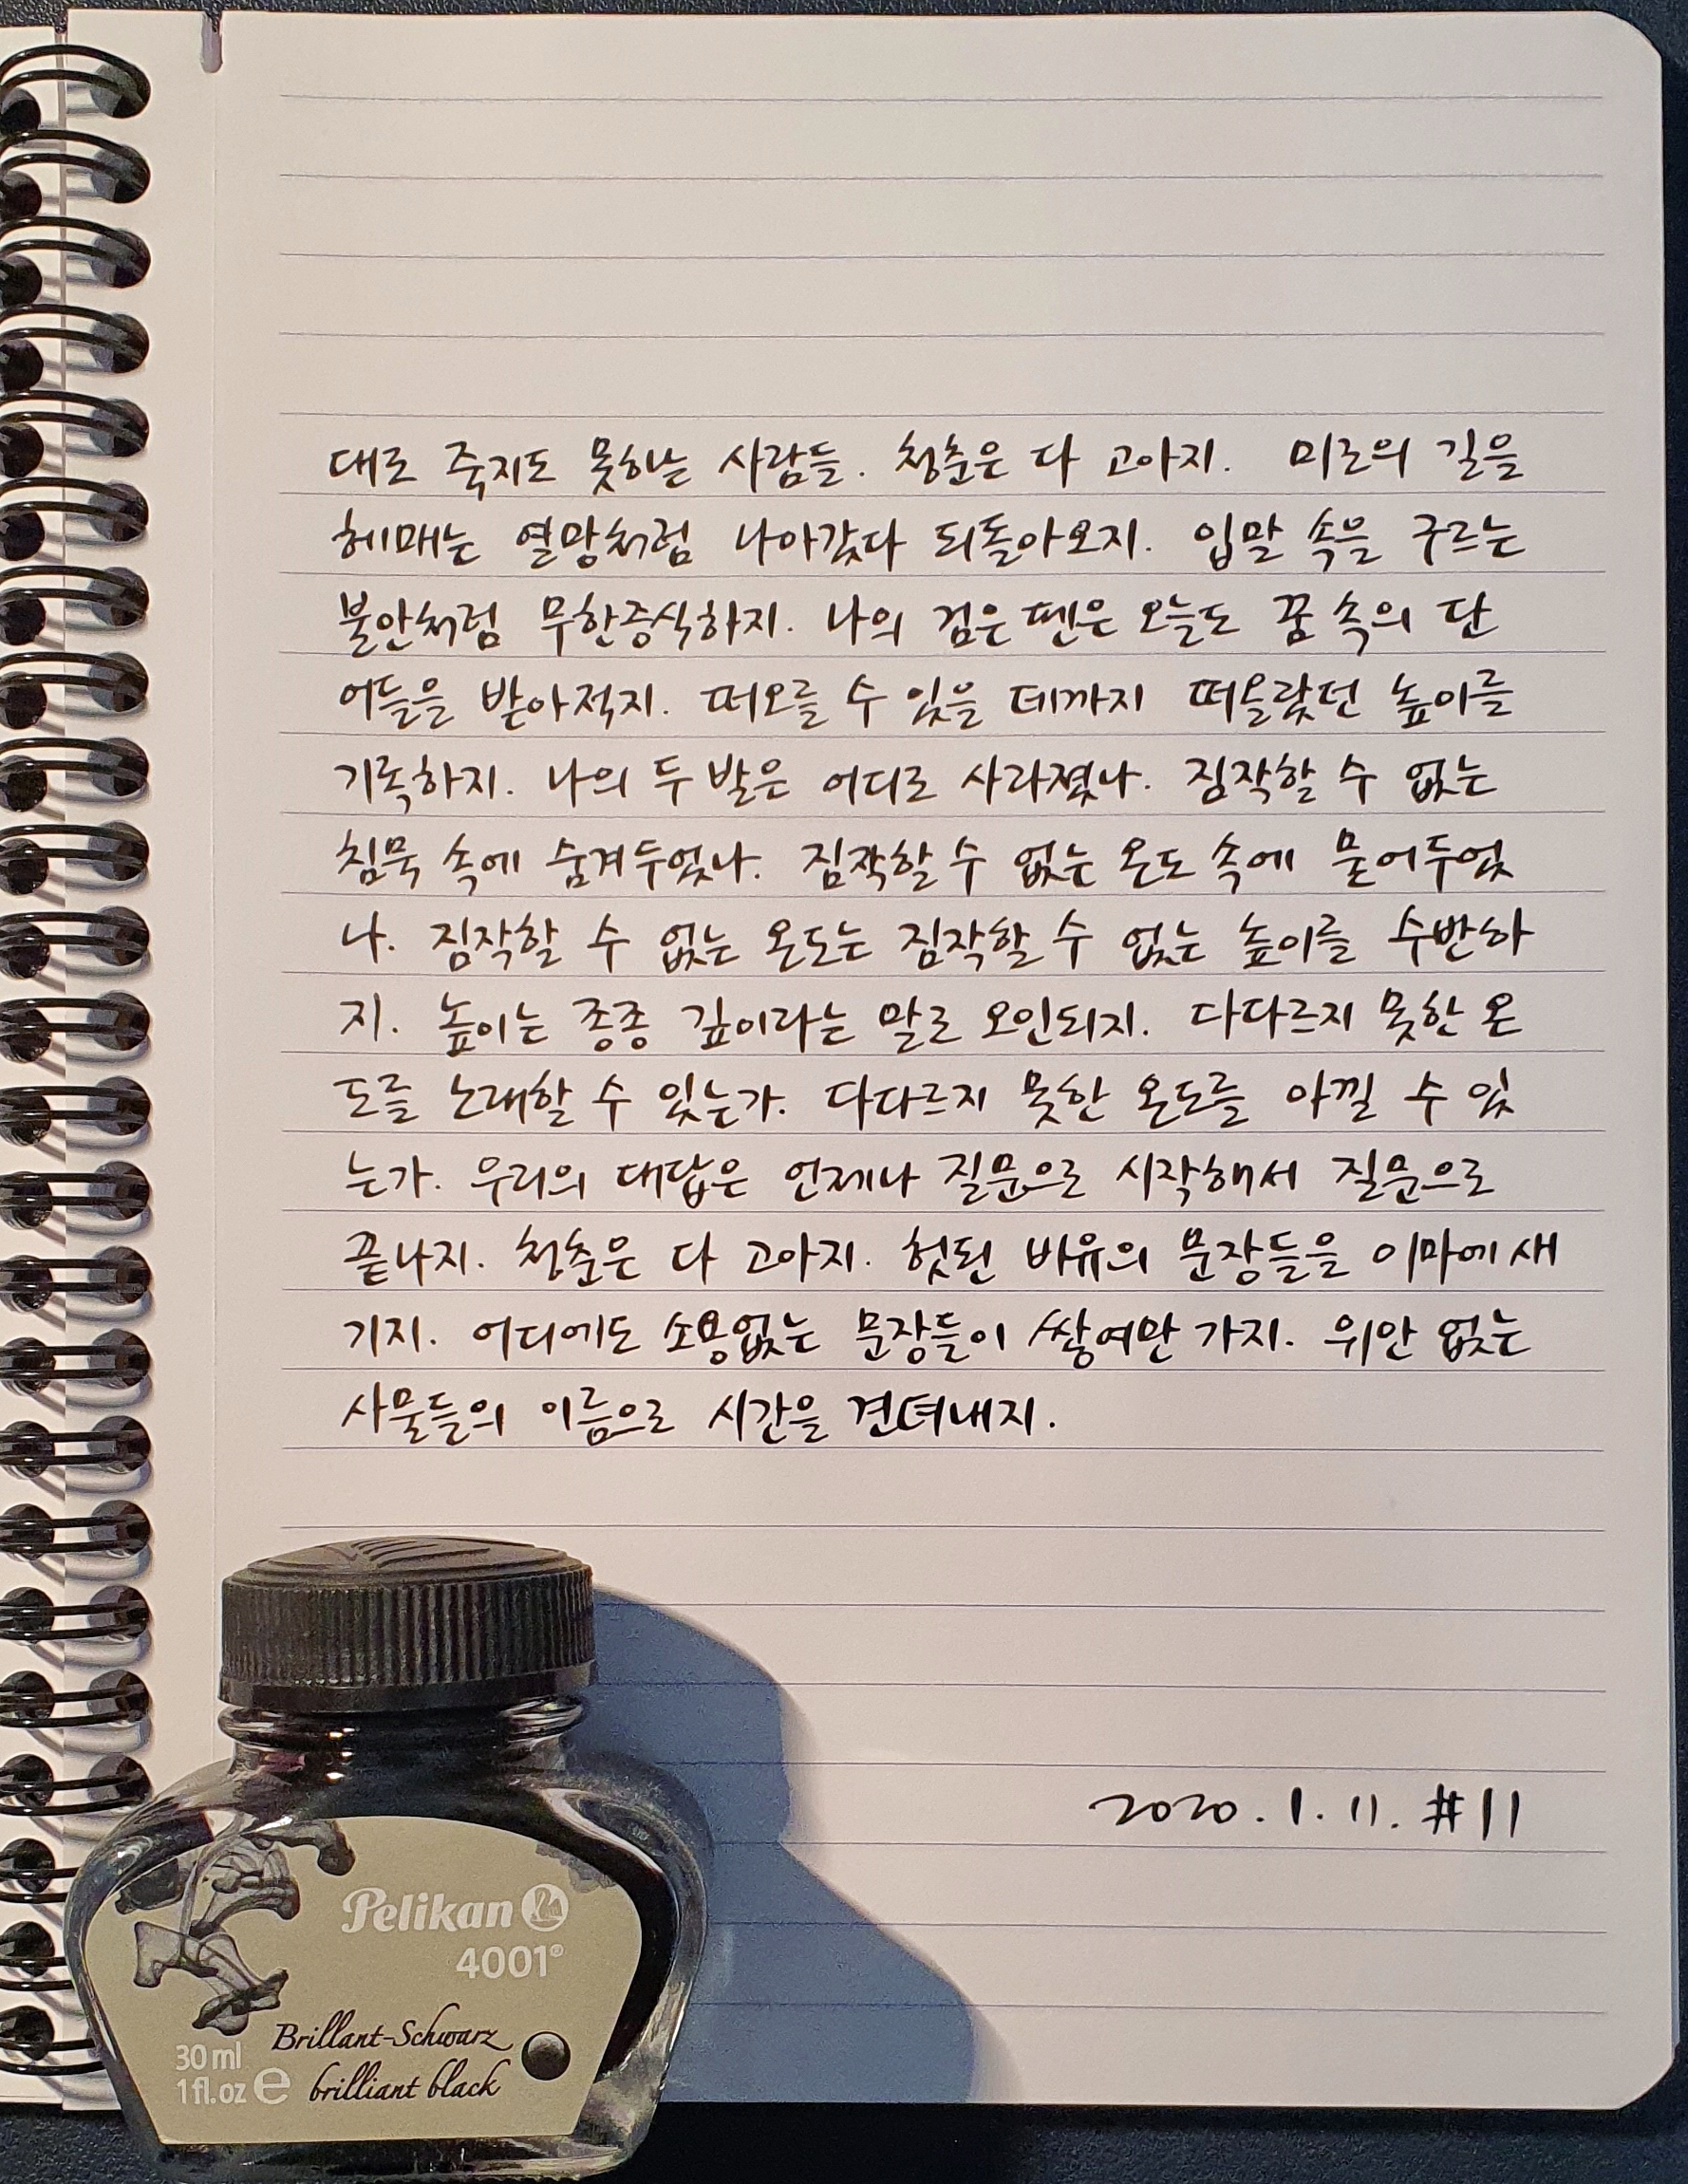 대로 죽지도 못하는 사람들. 청춘은 다 고아지. 미로의 길을
헤매는 열망처럼 나아갔다 되돌아오지. 입말 속을 구르는
불안처럼 무한증식하지. 나의 검은 펜은 오늘도 꿈 속의 단
어들을 받아적지. 떠오를 수 있을 데까지 떠올랐던 높이를
기록하지. 나의 두 발은 어디로 사라졌나. 짐작할 수 없는
침묵 속에 숨겨두었나. 짐작할 수 없는 온도 속에 묻어두었
나. 짐작할 수 없는 온도는 짐작할 수 없는 높이를 수반하
지. 높이는 종종 깊이라는 말로 오인되지. 다다르지 못한 온
도를 노래할 수 있는가. 다다르지 못한 온도를 아낄 수 있
는가. 우리의 대답은 언제나 질문으로 시작해서 질문으로
끝나지. 청춘은 다 고아지. 헛된 비유의 문장들을 이마에 새
기지. 어디에도 소용없는 문장들이 쌓여만 가지. 위안 없는
사물들의 이름으로 시간을 견뎌내지.
2020. 1. 11. #11
Pelikan
4001®
Brillant-Schwarz
brilliant black
30 ml
1 fl.oz e